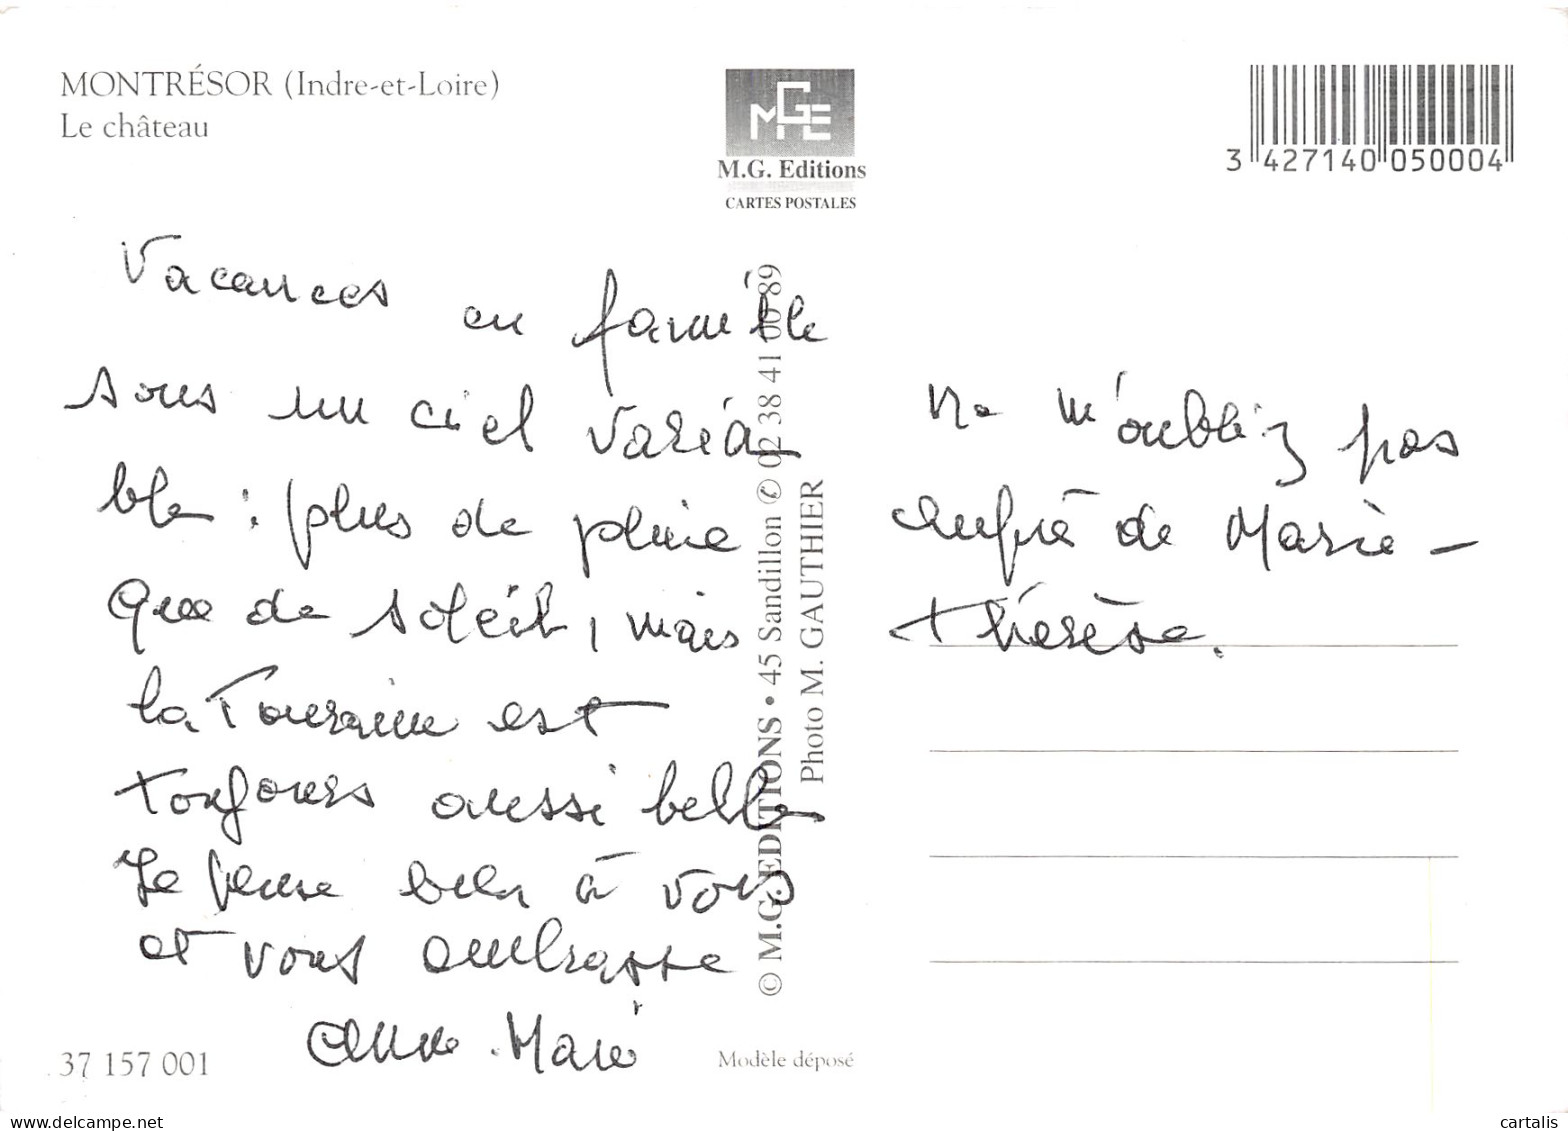 MONTRÉSOR (Indre-et-Loire)
Le château
MGE
M.G. Editions
CARTES POSTALES
3 427140 050004
Vacances en famille
sous un ciel varia
ble : plus de pluie
que de soleil, mais
la Touraine est
toujours aussi belle
Je pense bien à vous
et vous embrasse
Anne-Marie
Ne m'oubliez pas
auprè de Marie-
thérèse.
© M.G. EDITIONS • 45 Sandillon ✆ 02 38 41 00 89
Photo M. GAUTHIER
37 157 001
Modèle déposé
https://www.delcampe.net
cartalis